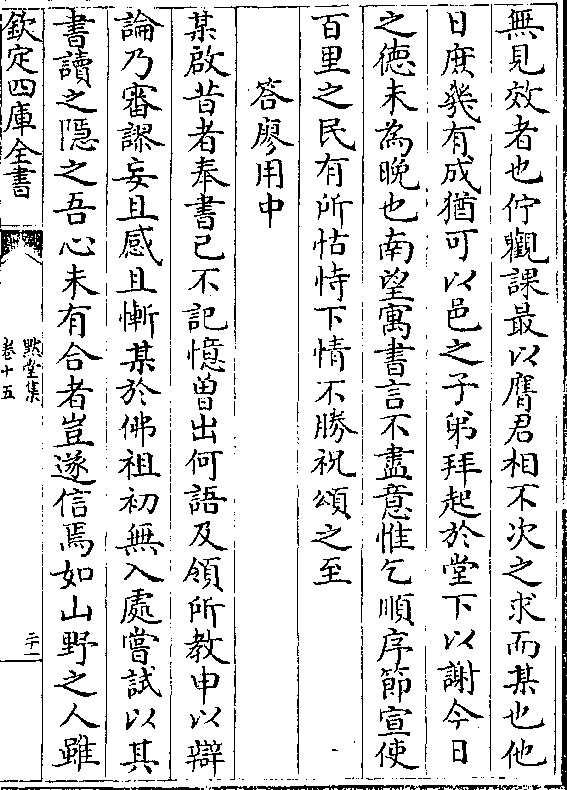 無見效者也佇觀課最以膺君相不次之求而某也他
日庶幾有成猶可以邑之子弟拜起於堂下以謝今日
之德未為晚也南望寓書言不盡意惟乞順序節宣使
百里之民有所怙恃下情不勝祝頌之至
答廖用中
某啟昔者奉書已不記憶曾出何語及領所教申以辯
論乃審謬妄且感且慚某於佛祖初無入處嘗試以其
書讀之隠之吾心未有合者豈遂信焉如山野之人雖
欽定四庫全書
默堂集
卷十五
二十一